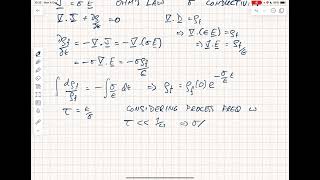 = σ E OHM'S LAW σ CONDUCTIVI
∇.J + ∂ρf/∂t = 0 ∇.D = ρf
⇒ ∇.(εE) = ρf
∂ρf/∂t = -∇.J = -∇.(σE) ⇒ ∇.E = ρf/ε
= -σ∇.E = -σρf/ε
∫ dρf/ρf = -∫ σ/ε dt ⇒ ρf = ρf(0) e^(-σ/ε t)
τ = ε/σ CONSIDERING PROCESS FREQ ω
τ << ⇒ σ/